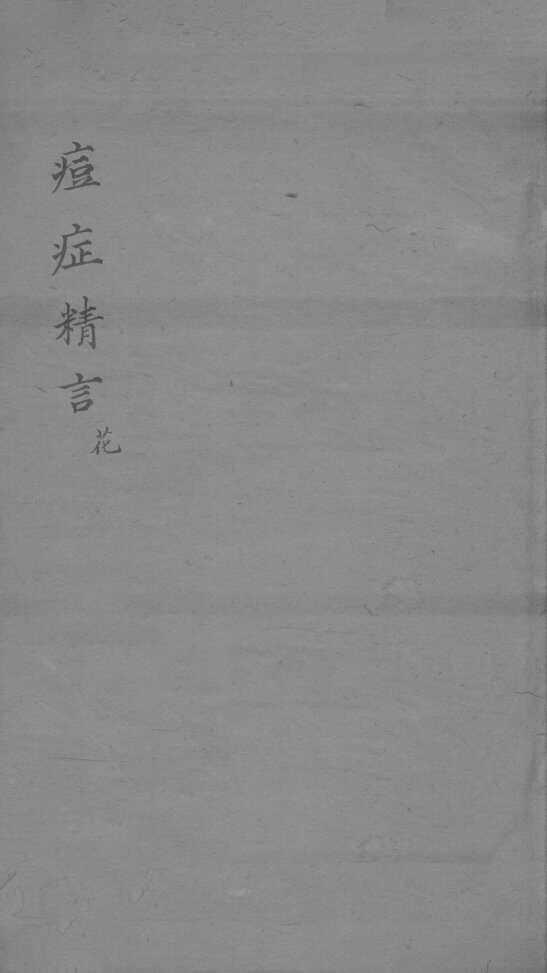 痘症精言
花